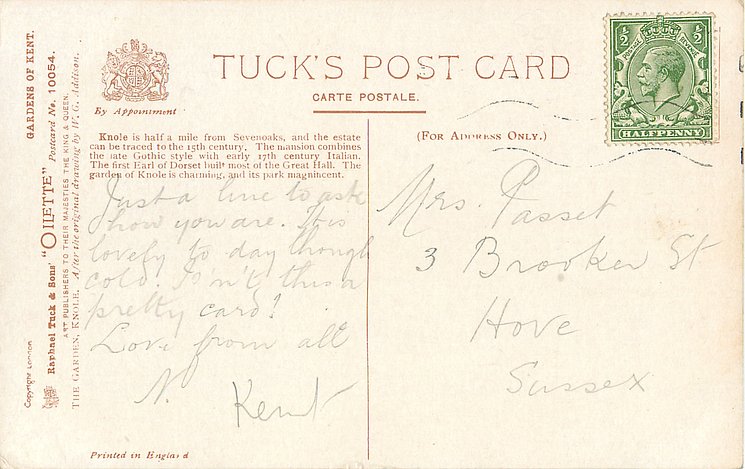 GARDENS OF KENT.
Raphael Tuck & Sons' "OILETTE" Postcard No. 10054.
ART PUBLISHERS TO THEIR MAJESTIES THE KING & QUEEN.
THE GARDEN, KNOLE. After the original drawing by W. G. Addison.
Copyright London
By Appointment
TUCK'S POST CARD
CARTE POSTALE.
Knole is half a mile from Sevenoaks, and the estate
can be traced to the 15th century. The mansion combines
the late Gothic style with early 17th century Italian.
The first Earl of Dorset built most of the Great Hall. The
garden of Knole is charming, and its park magnificent.
Just a line to ask
how you are. It is
lovely to day though
cold. Isn't this a
pretty card!
Love from all
N.
Kent
Printed in England
(FOR ADDRESS ONLY.)
Mrs. Passet
3 Brooker St
Hove
Sussex
½ ½
POSTAGE REVENUE
HALFPENNY